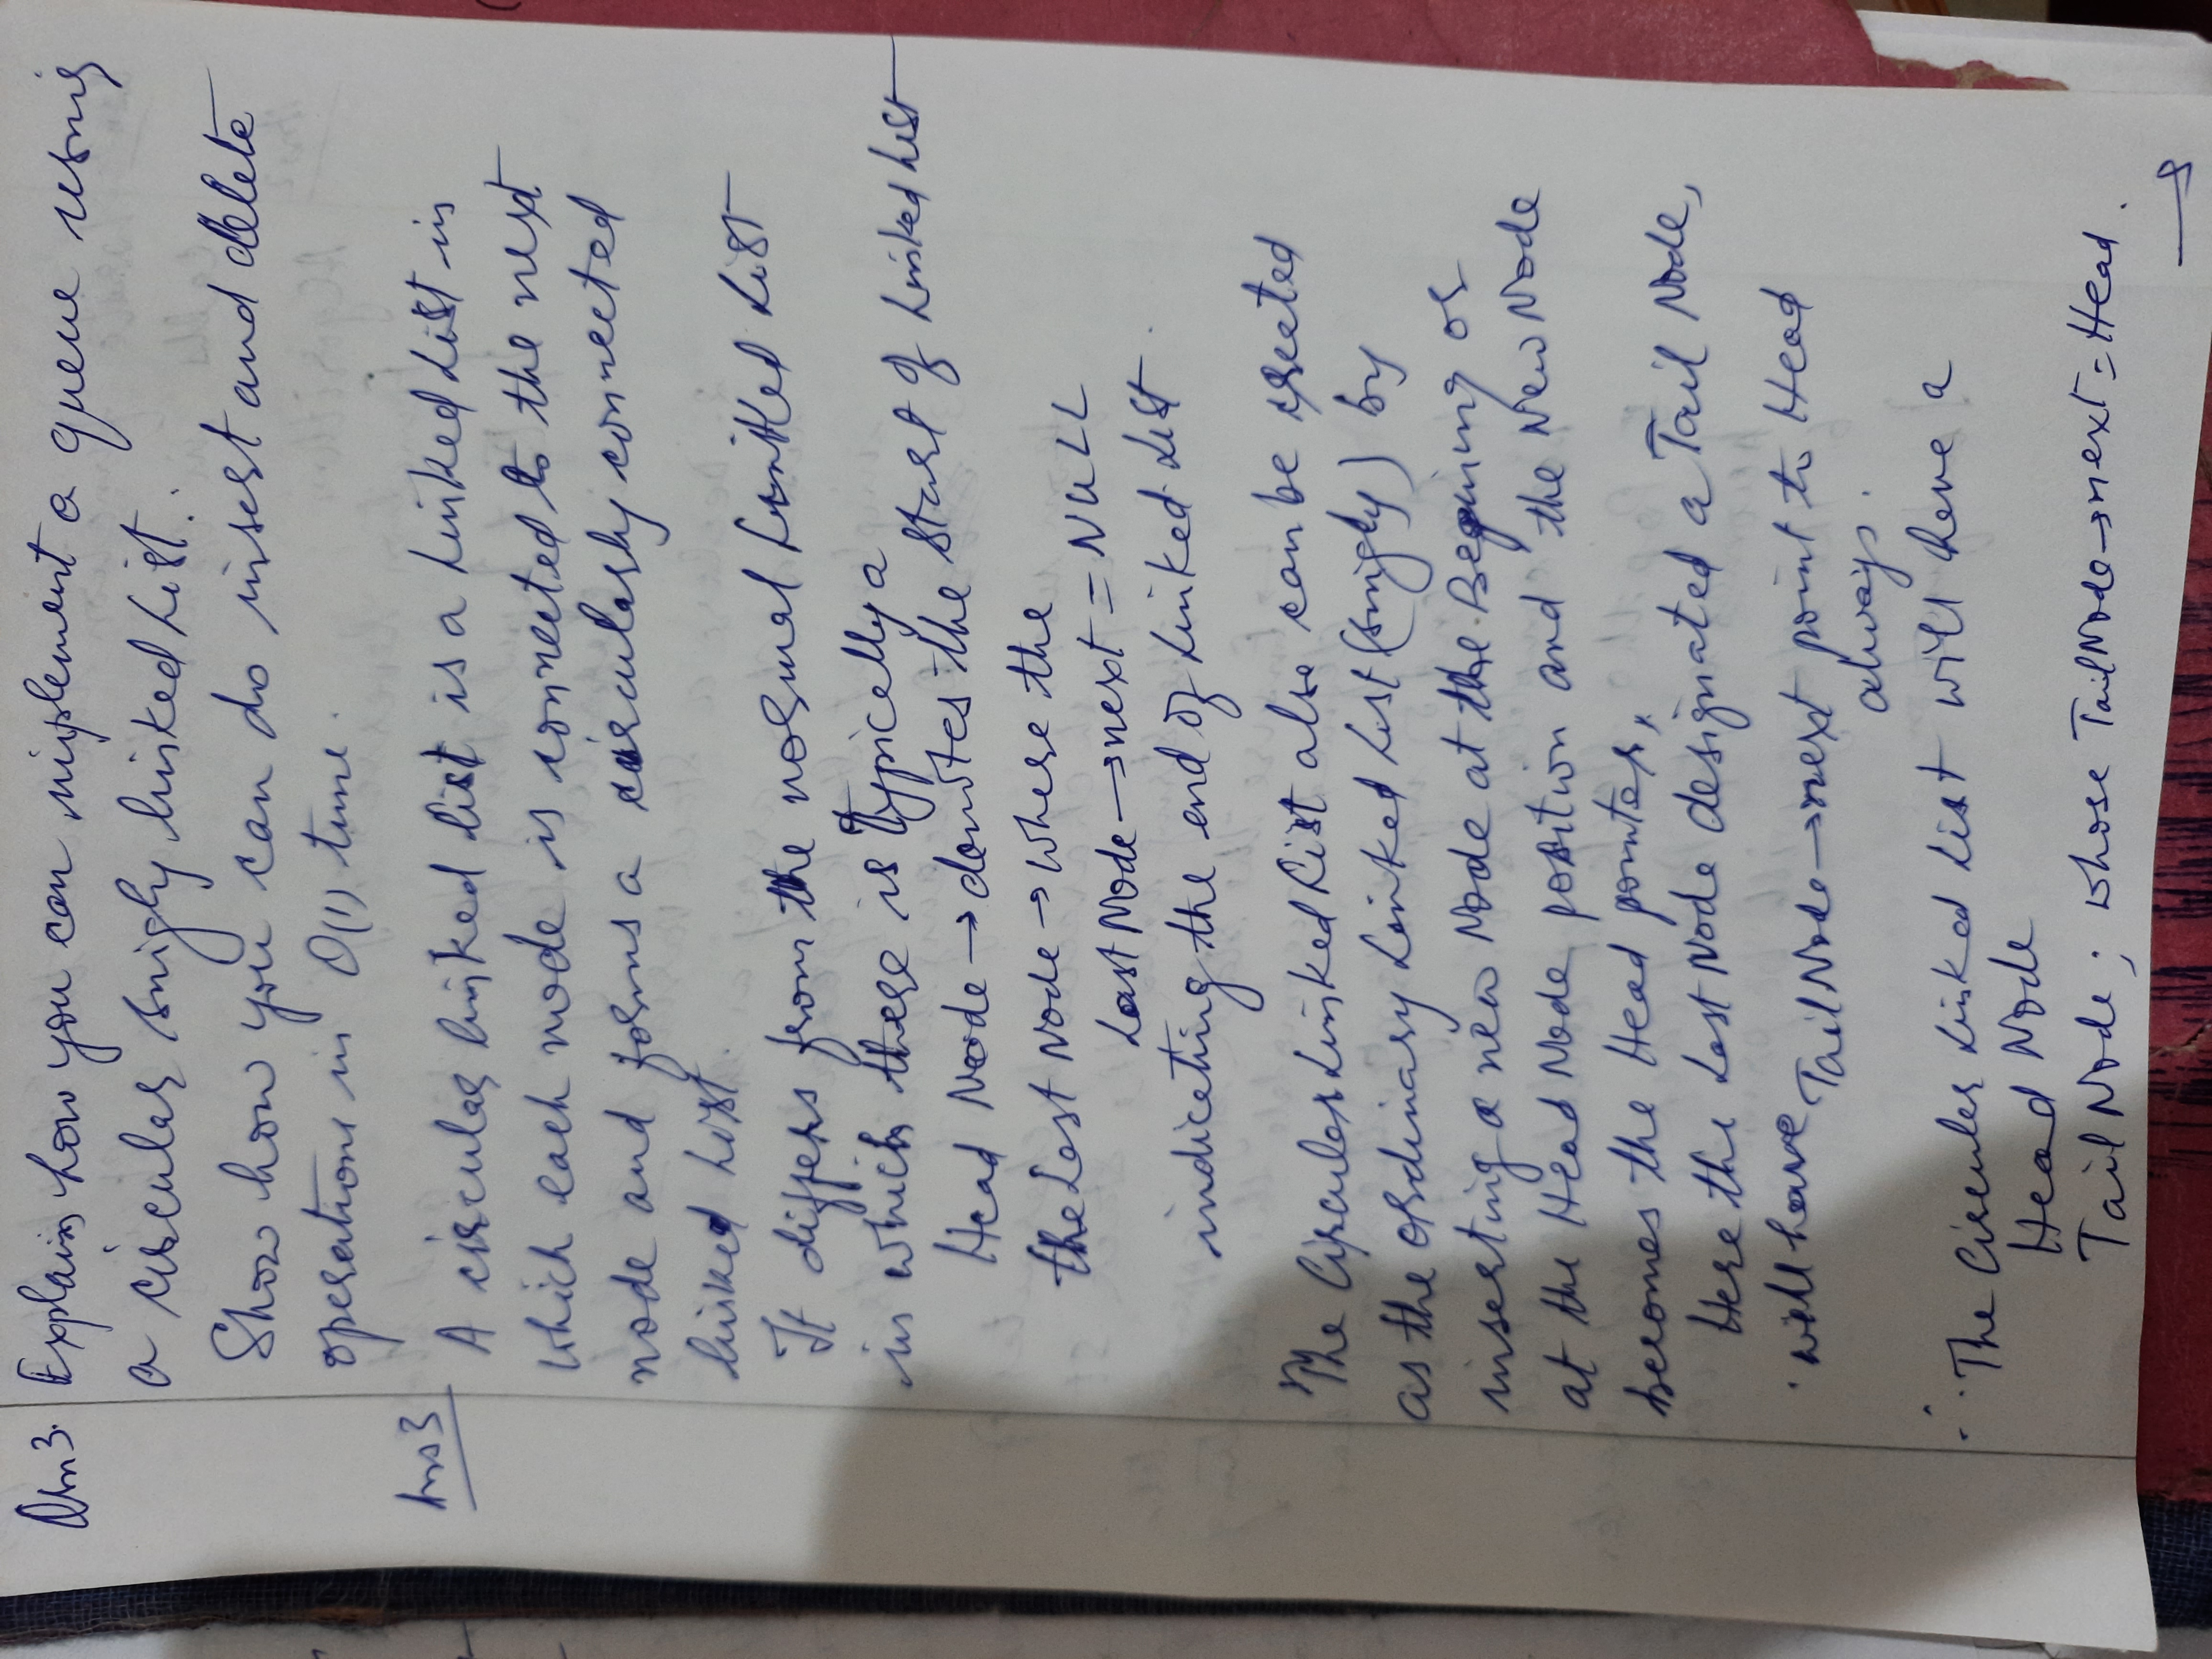 Qsn 3. Explain how you can implement a queue using
a circular singly linked List.
Show how you can do insert and delete
operations in O(1) time.
Ans 3
A circular linked list is a Linked List in
which each node is connected to the next
node and forms a circularly connected
linked List.
It differs from the normal Linked List
in which there is Typically a
Head Node → denotes the start of Linked List
the Last Node → where the
Last Node → next = NULL
indicating the end of Linked List
The Circular Linked List also can be created
as the ordinary Linked List (singly) by
inserting a new Node at the Begining or
at the Head Node position and the New Node
becomes the Head pointer,
Here the Last Node designated a Tail Node,
will have Tail Node → next point to Head
always.
∴ The Circular Linked List will have a
Head Node
Tail Node ; whose Tail Node → next = Head.
→